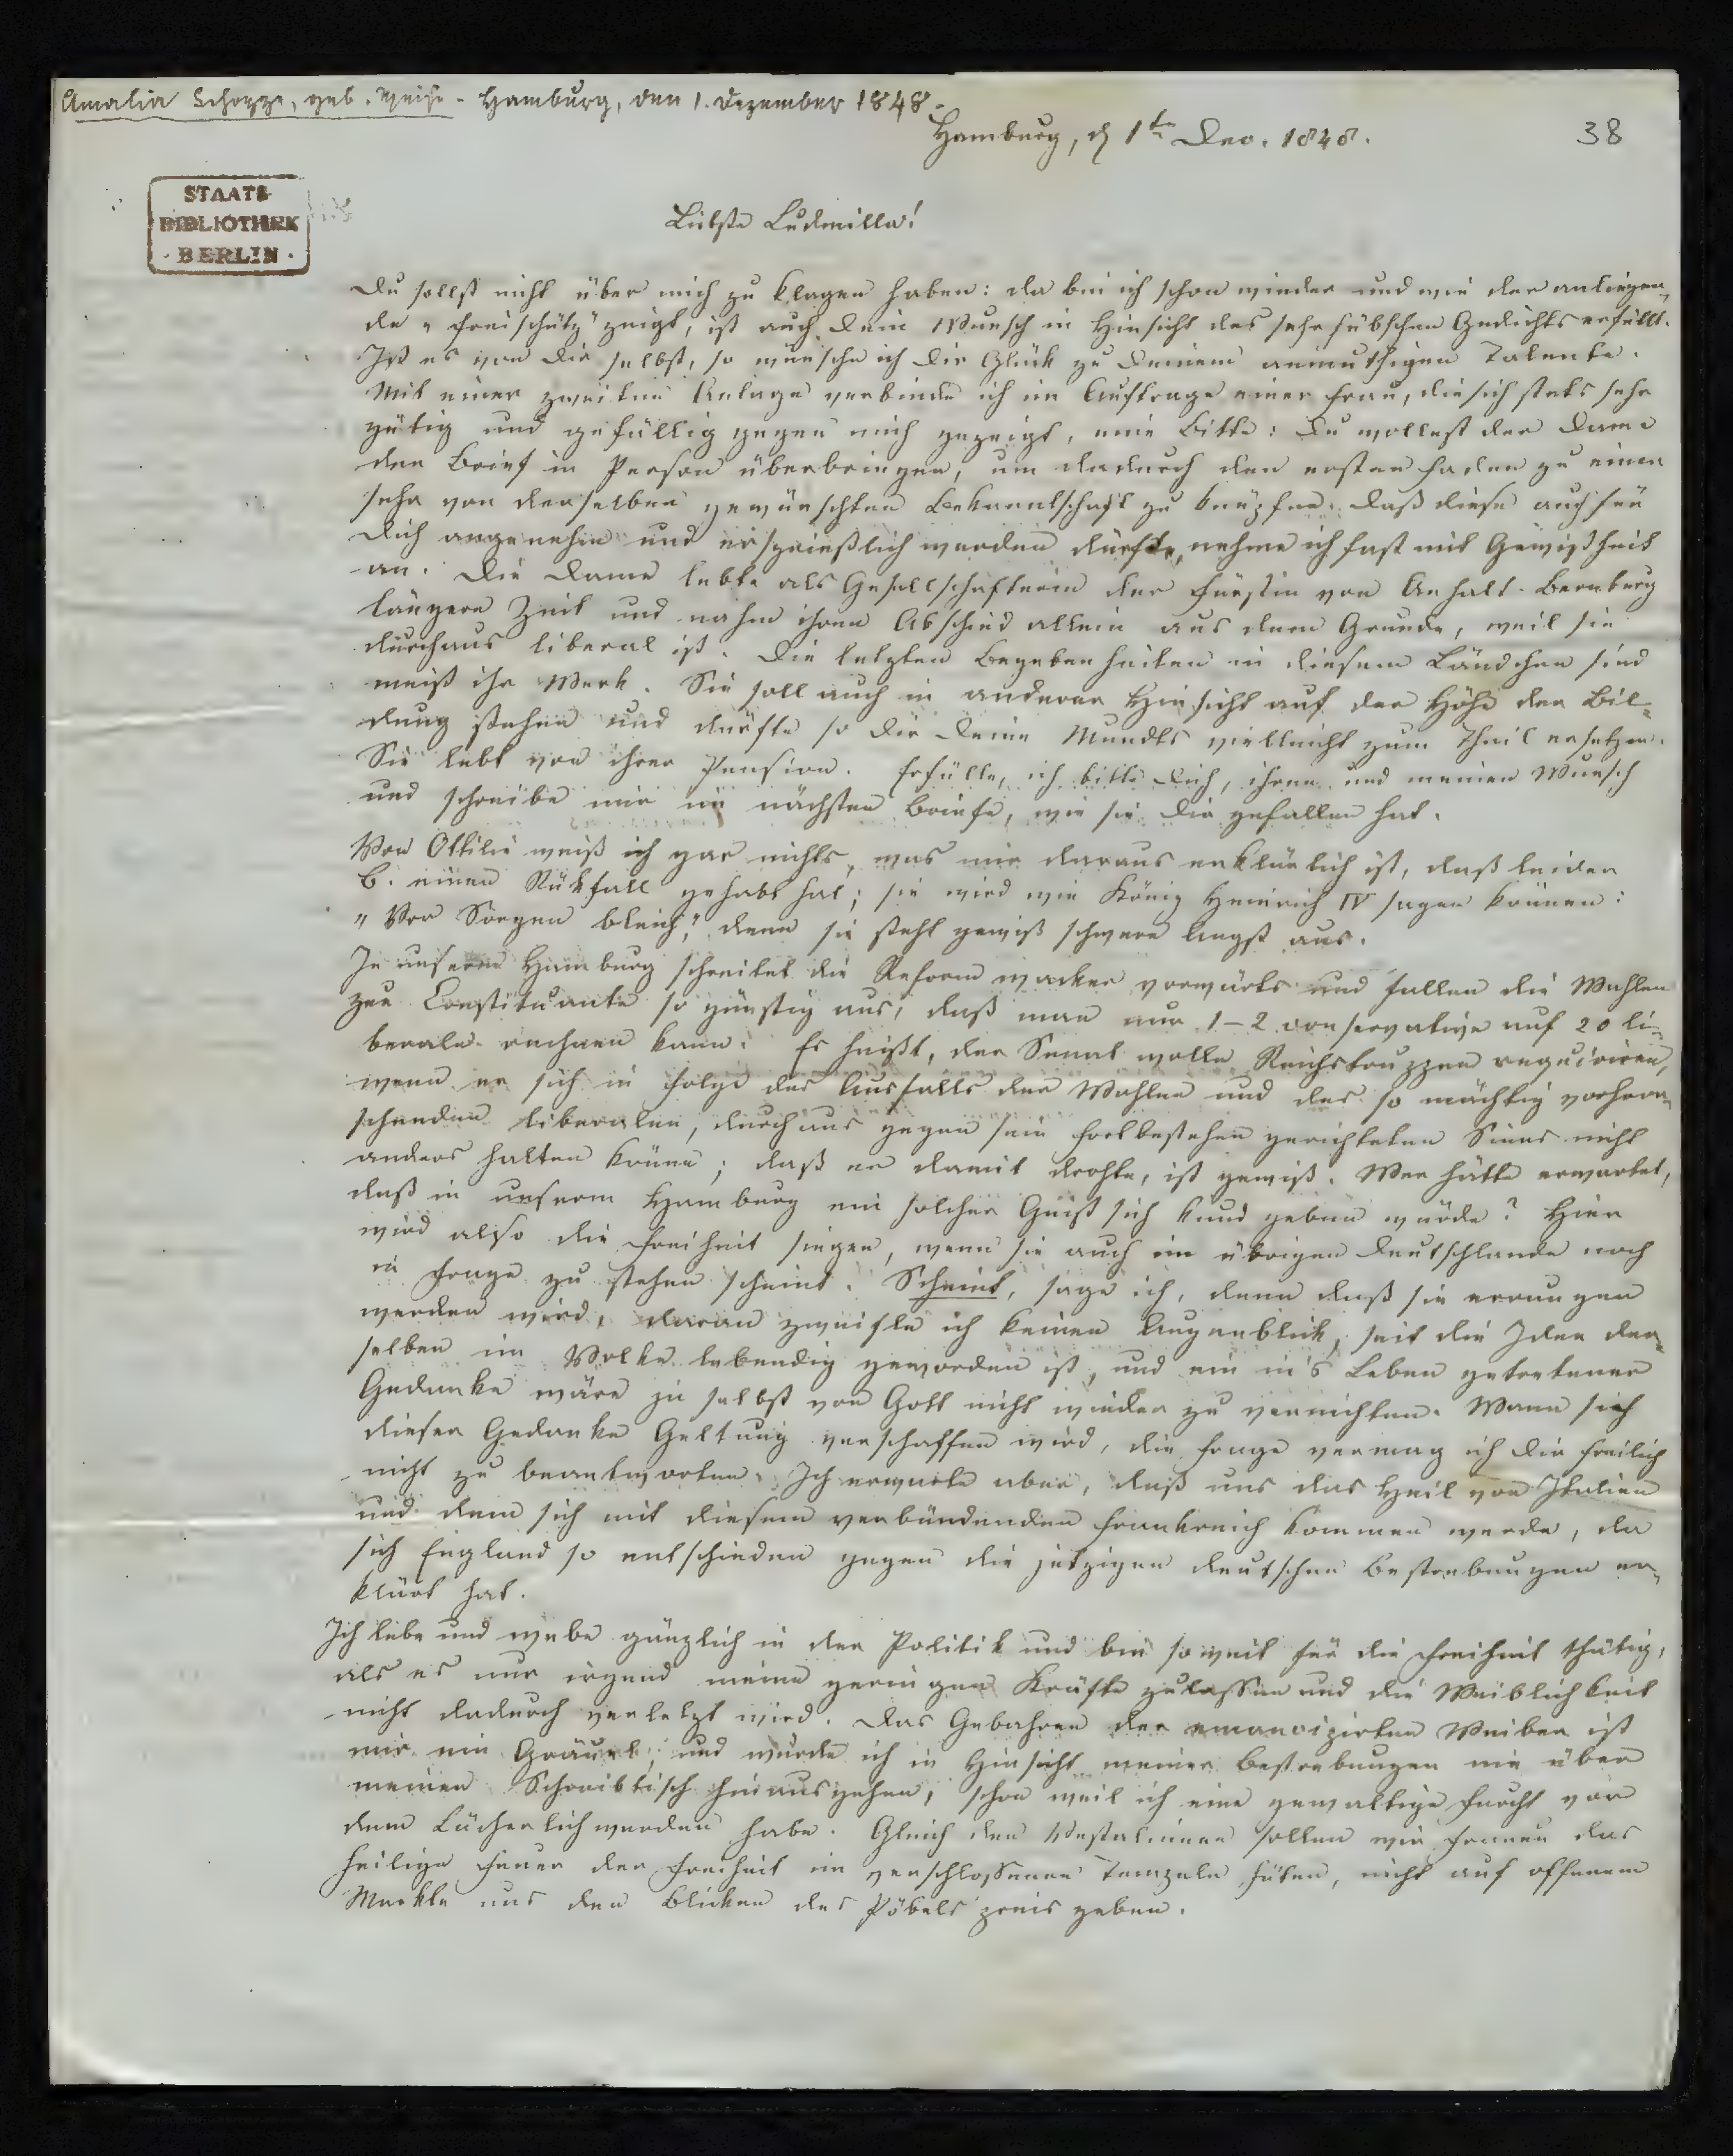 Amalia Schoppe, geb. Weise - Hamburg, den 1. Dezember 1848.
Hamburg, d 1t Dec. 1848.
38
STAATS
BIBLIOTHEK
· BERLIN ·
Liebste Ludmilla!
Du sollst nicht über mich zu klagen haben: da bin ich schon wieder und wie der anliegen-
de „Freischütz" zeigt, ist auch Dein Wunsch in Hinsicht des sehr hübschen Gedichts erfüllt.
Ist es von Dir selbst, so wünsche ich Dir Glück zu Deinem anmuthigen Talente.
Mit einer zweiten Anlage verbinde ich im Auftrage einer Frau, die sich stets sehr
gütig und gefällig gegen mich gezeigt, eine Bitte: Du wollest der Dame
den Brief in Person überbringen, um dadurch den ersten Faden zu einer
sehr von derselben gewünschten Bekanntschaft zu knüpfen. Daß diese auch für
Dich angenehm und ersprießlich werden dürfte, nehme ich fast mit Gewißheit
an. Die Dame lebte als Gesellschafterin der Fürstin von Anhalt-Bernburg
längere Zeit und nahm ihren Abschied allein aus dem Grunde, weil sie
durchaus liberal ist. Die letzten Begebenheiten in diesem Ländchen sind
meist ihr Werk. Sie soll auch in anderer Hinsicht auf der Höhe der Bil-
dung stehen und dürfte so Dir Deine Mundts vielleicht zum Theil ersetzen.
Sie lebt von ihrer Pension. Erfülle, ich bitte Dich, ihren und meinen Wunsch
und schreibe mir im nächsten Briefe, wie sie Dir gefallen hat.
Von Ottilie weiß ich gar nichts, was mir daraus erklärlich ist, daß leider
B. einen Rükfall gehabt hat; sie wird wie König Heinrich IV sagen können:
„Vor Sorgen bleich," denn sie steht gewiß schwere Angst aus.
In unserm Hamburg schreitet die Reform wacker vorwärts und fallen die Wahlen
zur Constituante so günstig aus, daß man nur 1-2 conservative auf 20 li-
berale rechnen kann. Es heißt, der Senat wolle Reichstruppen requiriren,
wenn er sich in Folge des Ausfalls der Wahlen und des so mächtig vorherr-
schenden liberalen, durchaus gegen sein Fortbestehen gerichteten Sinns nicht
anders halten könne; daß er damit drohte, ist gewiß. Wer hätte erwartet,
daß in unserm Hamburg ein solcher Geist sich kund geben würde? Hier
wird also die Freiheit siegen, wenn sie auch im übrigen Deutschlande noch
in Frage zu stehen scheint. Scheint, sage ich, denn daß sie errungen
werden wird, daran zweifle ich keinen Augenblick, seit die Idee der-
selben im Volke lebendig geworden ist, und ein in's Leben getretener
Gedanke wäre ja selbst von Gott nicht wieder zu vernichten. Wann sich
dieser Gedanke Geltung verschaffen wird, die Frage vermag ich Dir freilich
nicht zu beantworten. Ich erwarte aber, daß uns das Heil von Italien
und dem sich mit diesem verbündenden Frankreich kommen werde, da
sich England so entschieden gegen die jetzigen deutschen Bestrebungen er-
klärt hat.
Ich lebe und webe gänzlich in der Politik und bin so weit für die Freiheit thätig,
als es nur irgend meine geringen Kräfte zulassen und die Weiblichkeit
nicht dadurch verletzt wird. Das Gebahren der emancipirten Weiber ist
mir ein Gräuel, und würde ich in Hinsicht meiner Bestrebungen nie über
meinen Schreibtisch hinausgehen, schon weil ich eine gewaltige Furcht vor
dem Lächerlichwerden habe. Gleich den Vestalinnen sollen wir Frauen das
heilige Feuer der Freiheit im verschlossenen Tempeln hüten, nicht auf offenem
Markte uns den Blicken des Pöbels preis geben.